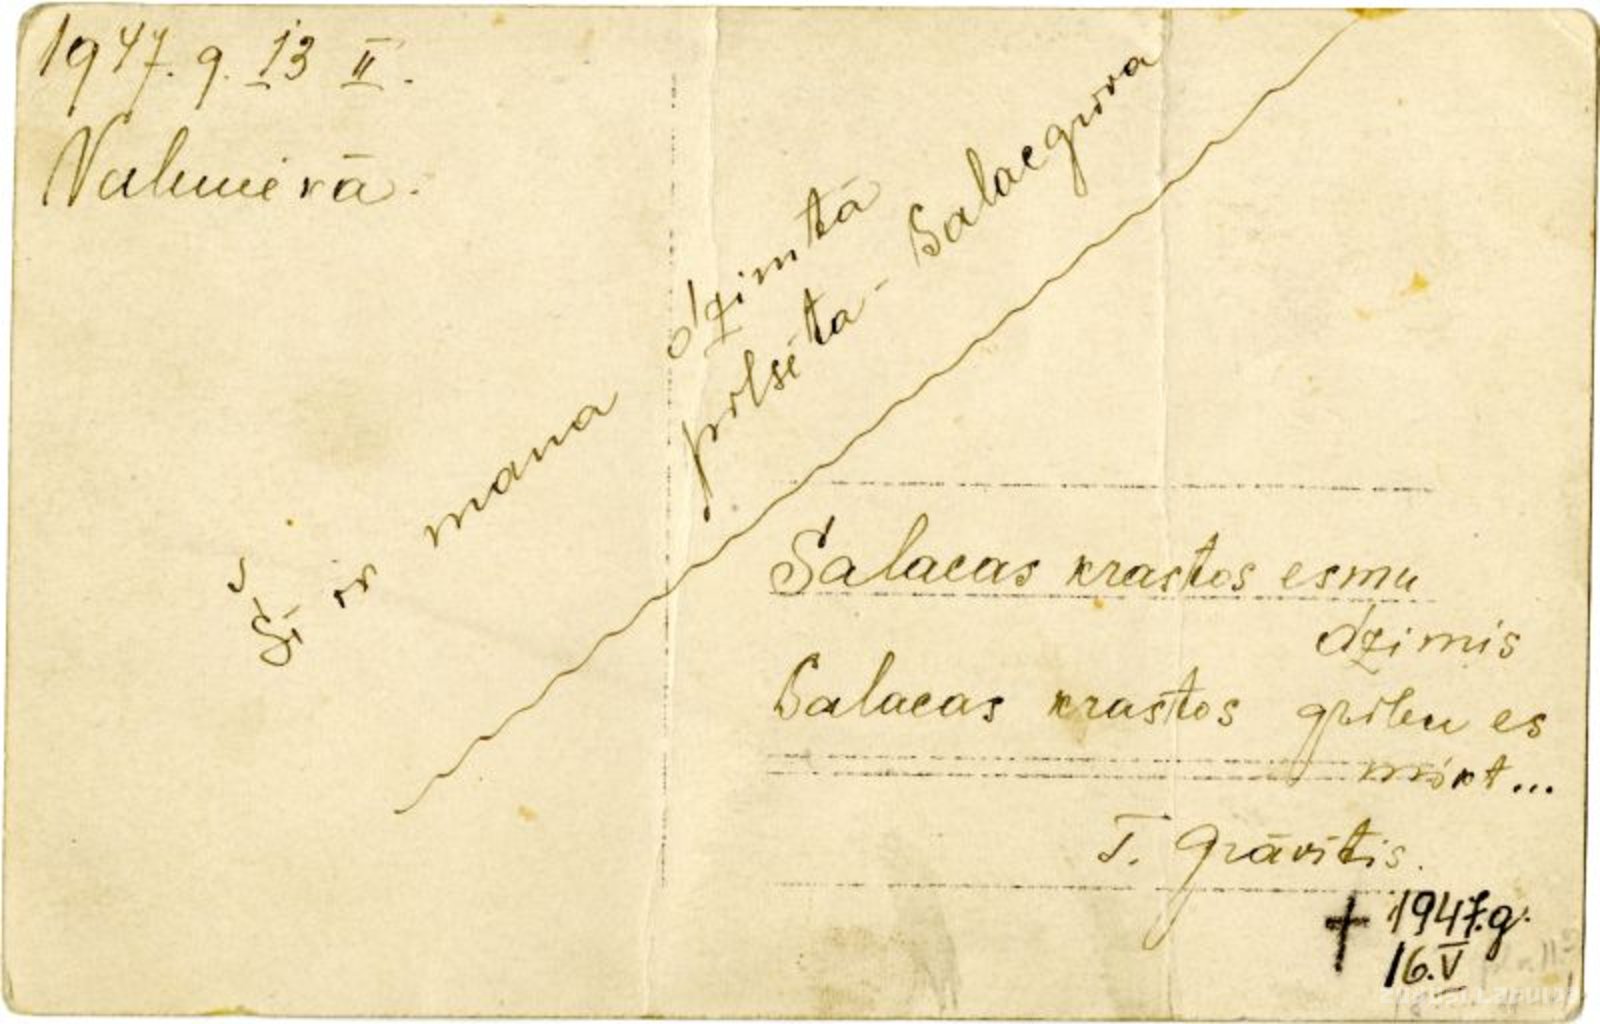 1947. g. 13 II.
Valmierā.
Šī ir mana dzimtā
pilsēta - Salacgrīva
Salacas krastos esmu
dzimis
Salacas krastos gribu es
mirt...
T. Grāvītis.
† 1947.g.
16.V